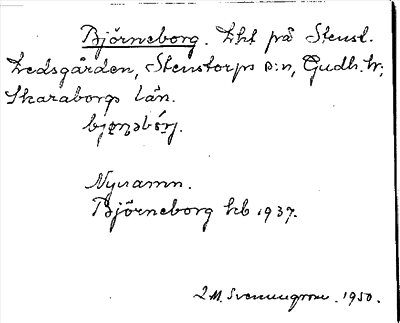 Björneborg. Lht på Stensl.
Ledsgården, Stenstorps s:n, Gudh. hr;
Skaraborgs län.
Nyнамn.
Björneborg kb 1937.
2 M. Svenungsson. 1950.